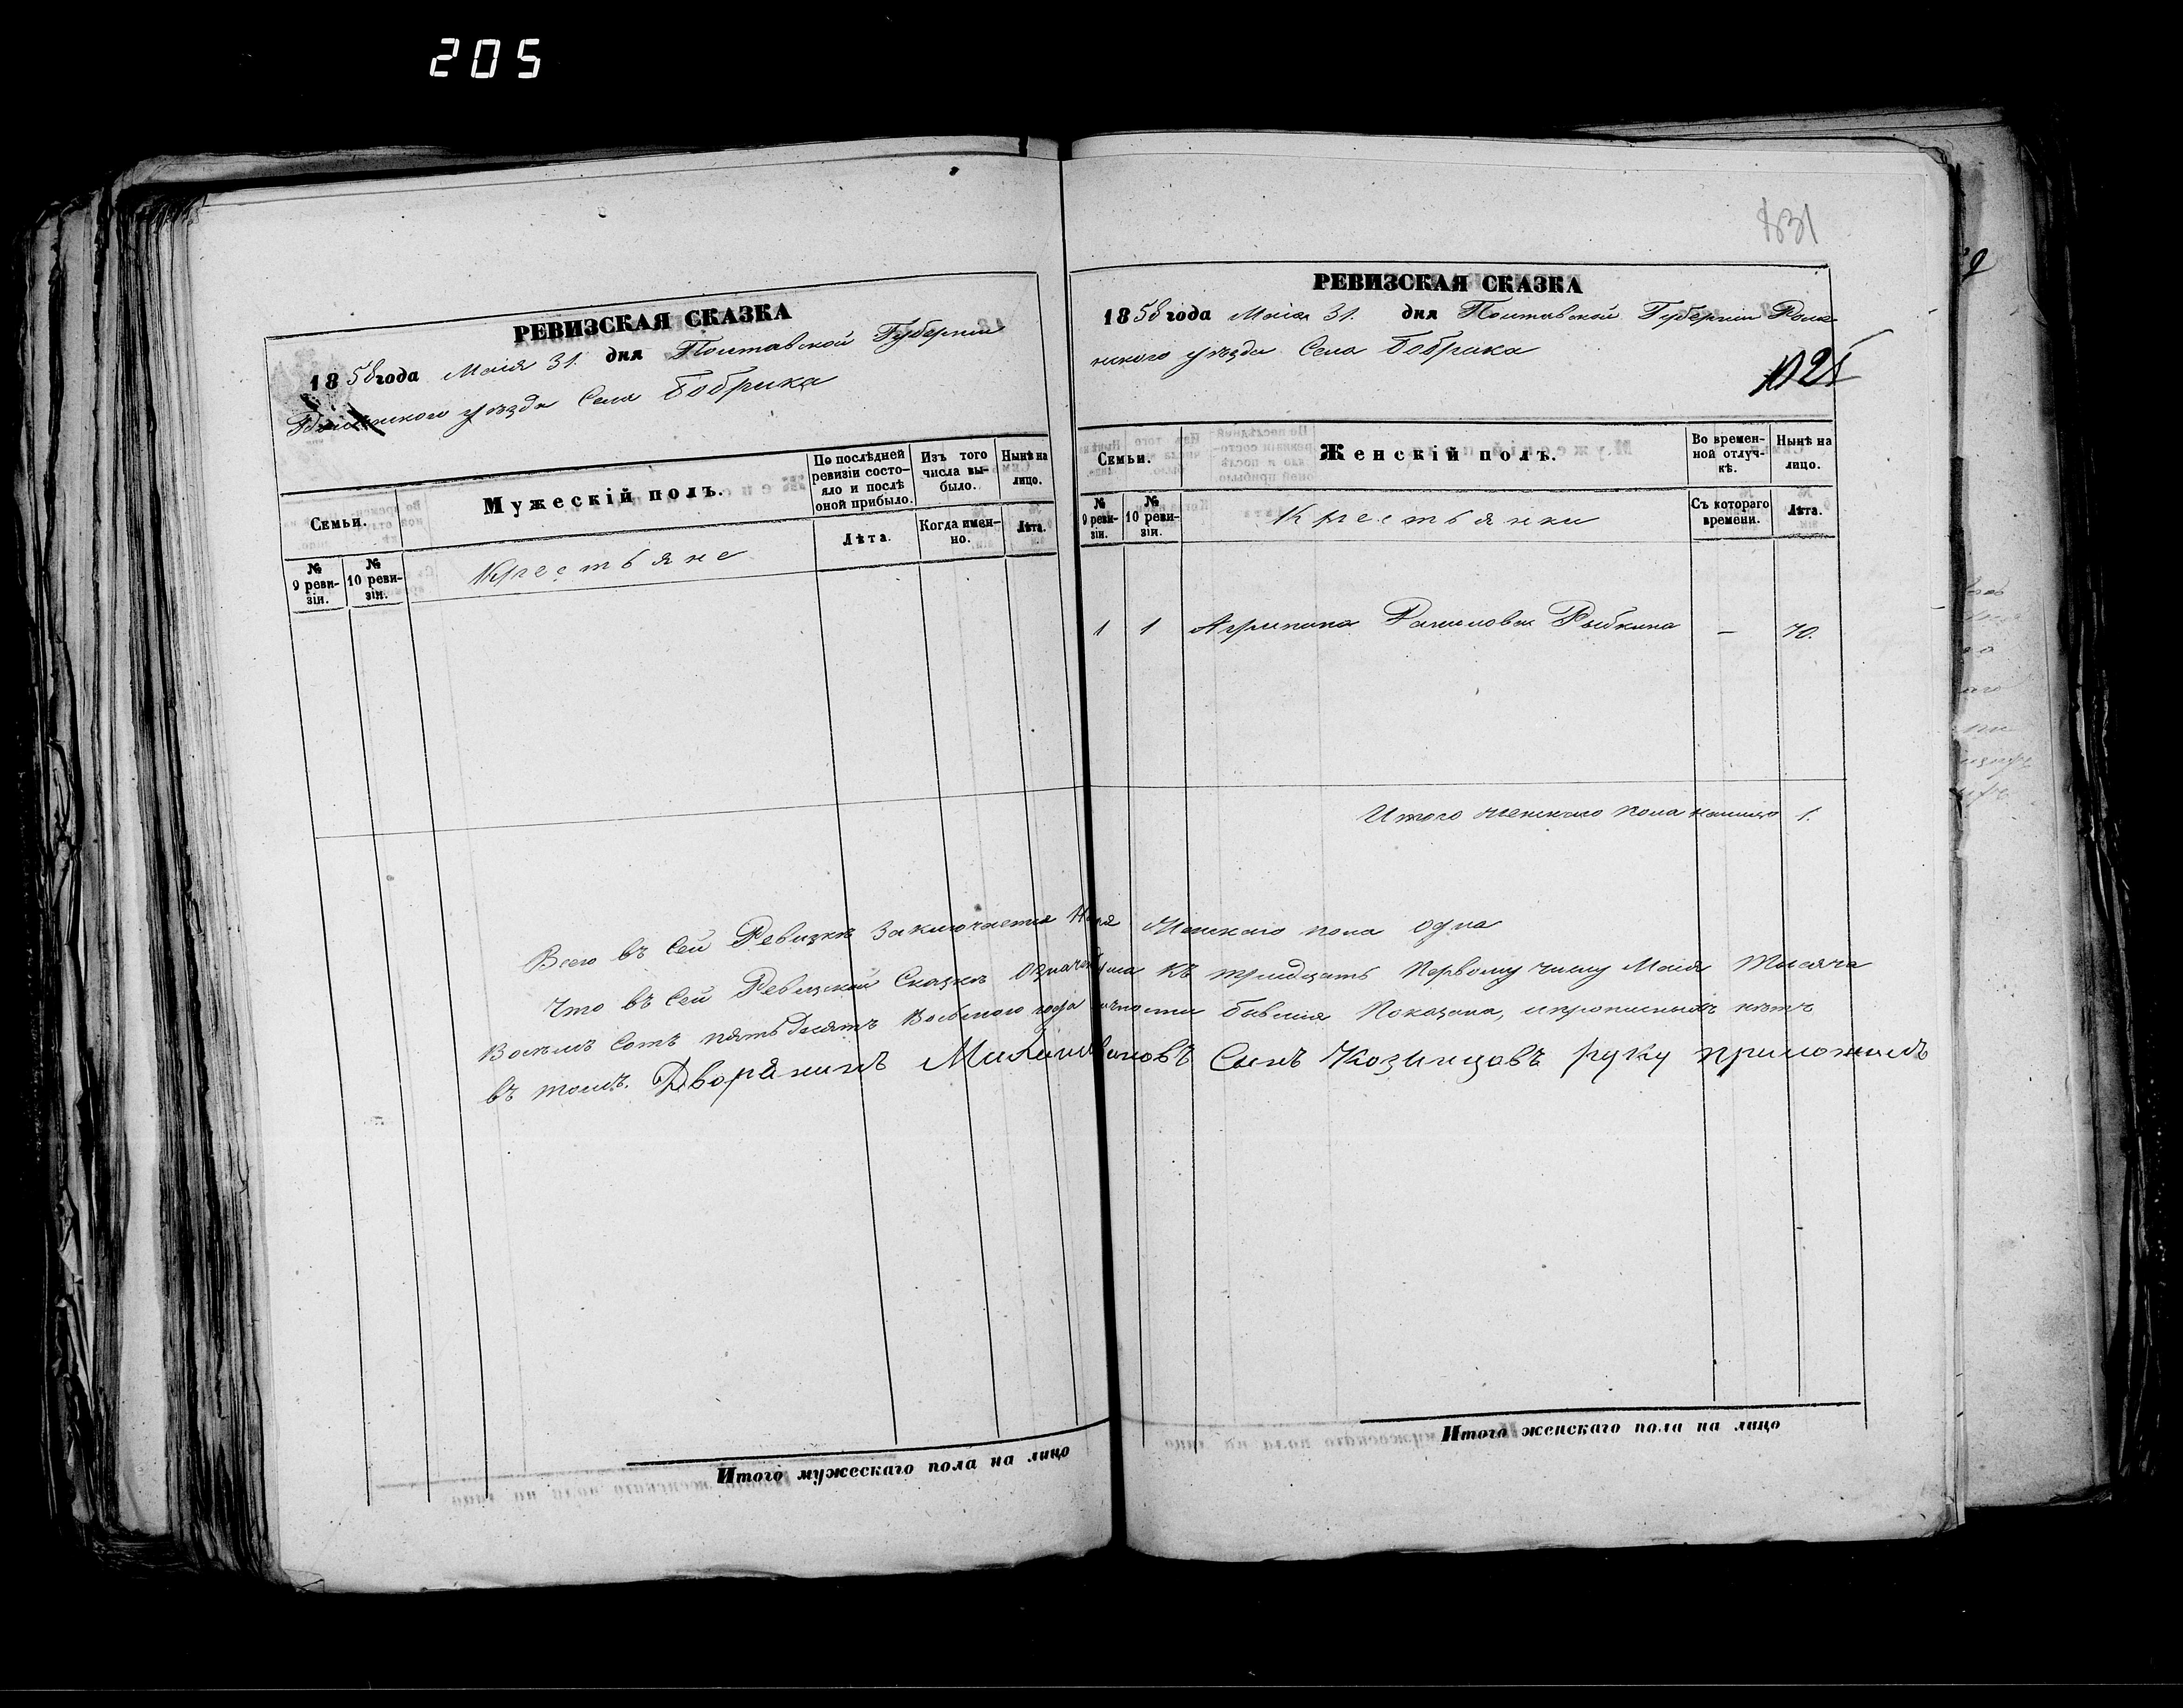 205
РЕВИЗСКАЯ СКАЗКА
1858 года Маія 31. дня Полтавской Губерніи
уѣзда Села Бобрика
Семьи.
Мужескій полъ.
По послѣдней ревизіи состояло и послѣ оной прибыло.
Изъ того числа выбыло.
Нынѣ на лицо.
№ 9 ревизіи.
№ 10 ревизіи.
Крестьяне
Лѣта.
Когда именно.
Лѣта.
831
РЕВИЗСКАЯ СКАЗКА
1858 года Маія 31. дня Полтавской Губерніи Роме
нского уѣзда Села Бобрика
1021
Семьи.
Женскій полъ.
Во временной отлучкѣ.
Нынѣ на лицо.
№ 9 ревизіи.
№ 10 ревизіи.
Крестьянки
Съ котораго времени.
Лѣта.
1 1 Агрипина Рыбкина — 70.
Итого женскаго пола налицо 1.
Всего въ Сей Ревизкѣ Заключается Женскаго пола одна
Что въ Сей Ревизской Сказкѣ къ тридцать Первому числу Маія Тысяча
Восемь Сотъ пятьдесятъ Восьмого года бывшая Показана, и прописныхъ нѣтъ
въ томъ. Дворянинъ Сынъ Козинцовъ руку приложилъ
Итого мужескаго пола на лицо
Итого женскаго пола на лицо